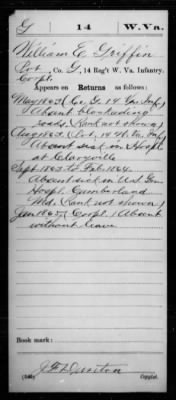 G 14 W. Va.
William E. Griffin
Pvt., Co. G, 14 Reg't W. Va. Infantry.
Corpl.
Appears on Returns as follows:
May 1863 (Co. G. 14 Va. Inf.)
Absent blockading
roads (Rank not shown)
Aug 1863. (Pvt, 14 W. Va. Inf)
Absent sick in Hosp'l
at Clarysville
Sept 1863 to Feb 1864.
Absent sick in U.S. Gen
Hospl. Cumberland
Md. (Rank not shown)
Jan 1865 (Corpl.) Absent
without leave
Book mark:
(546) Copyist.